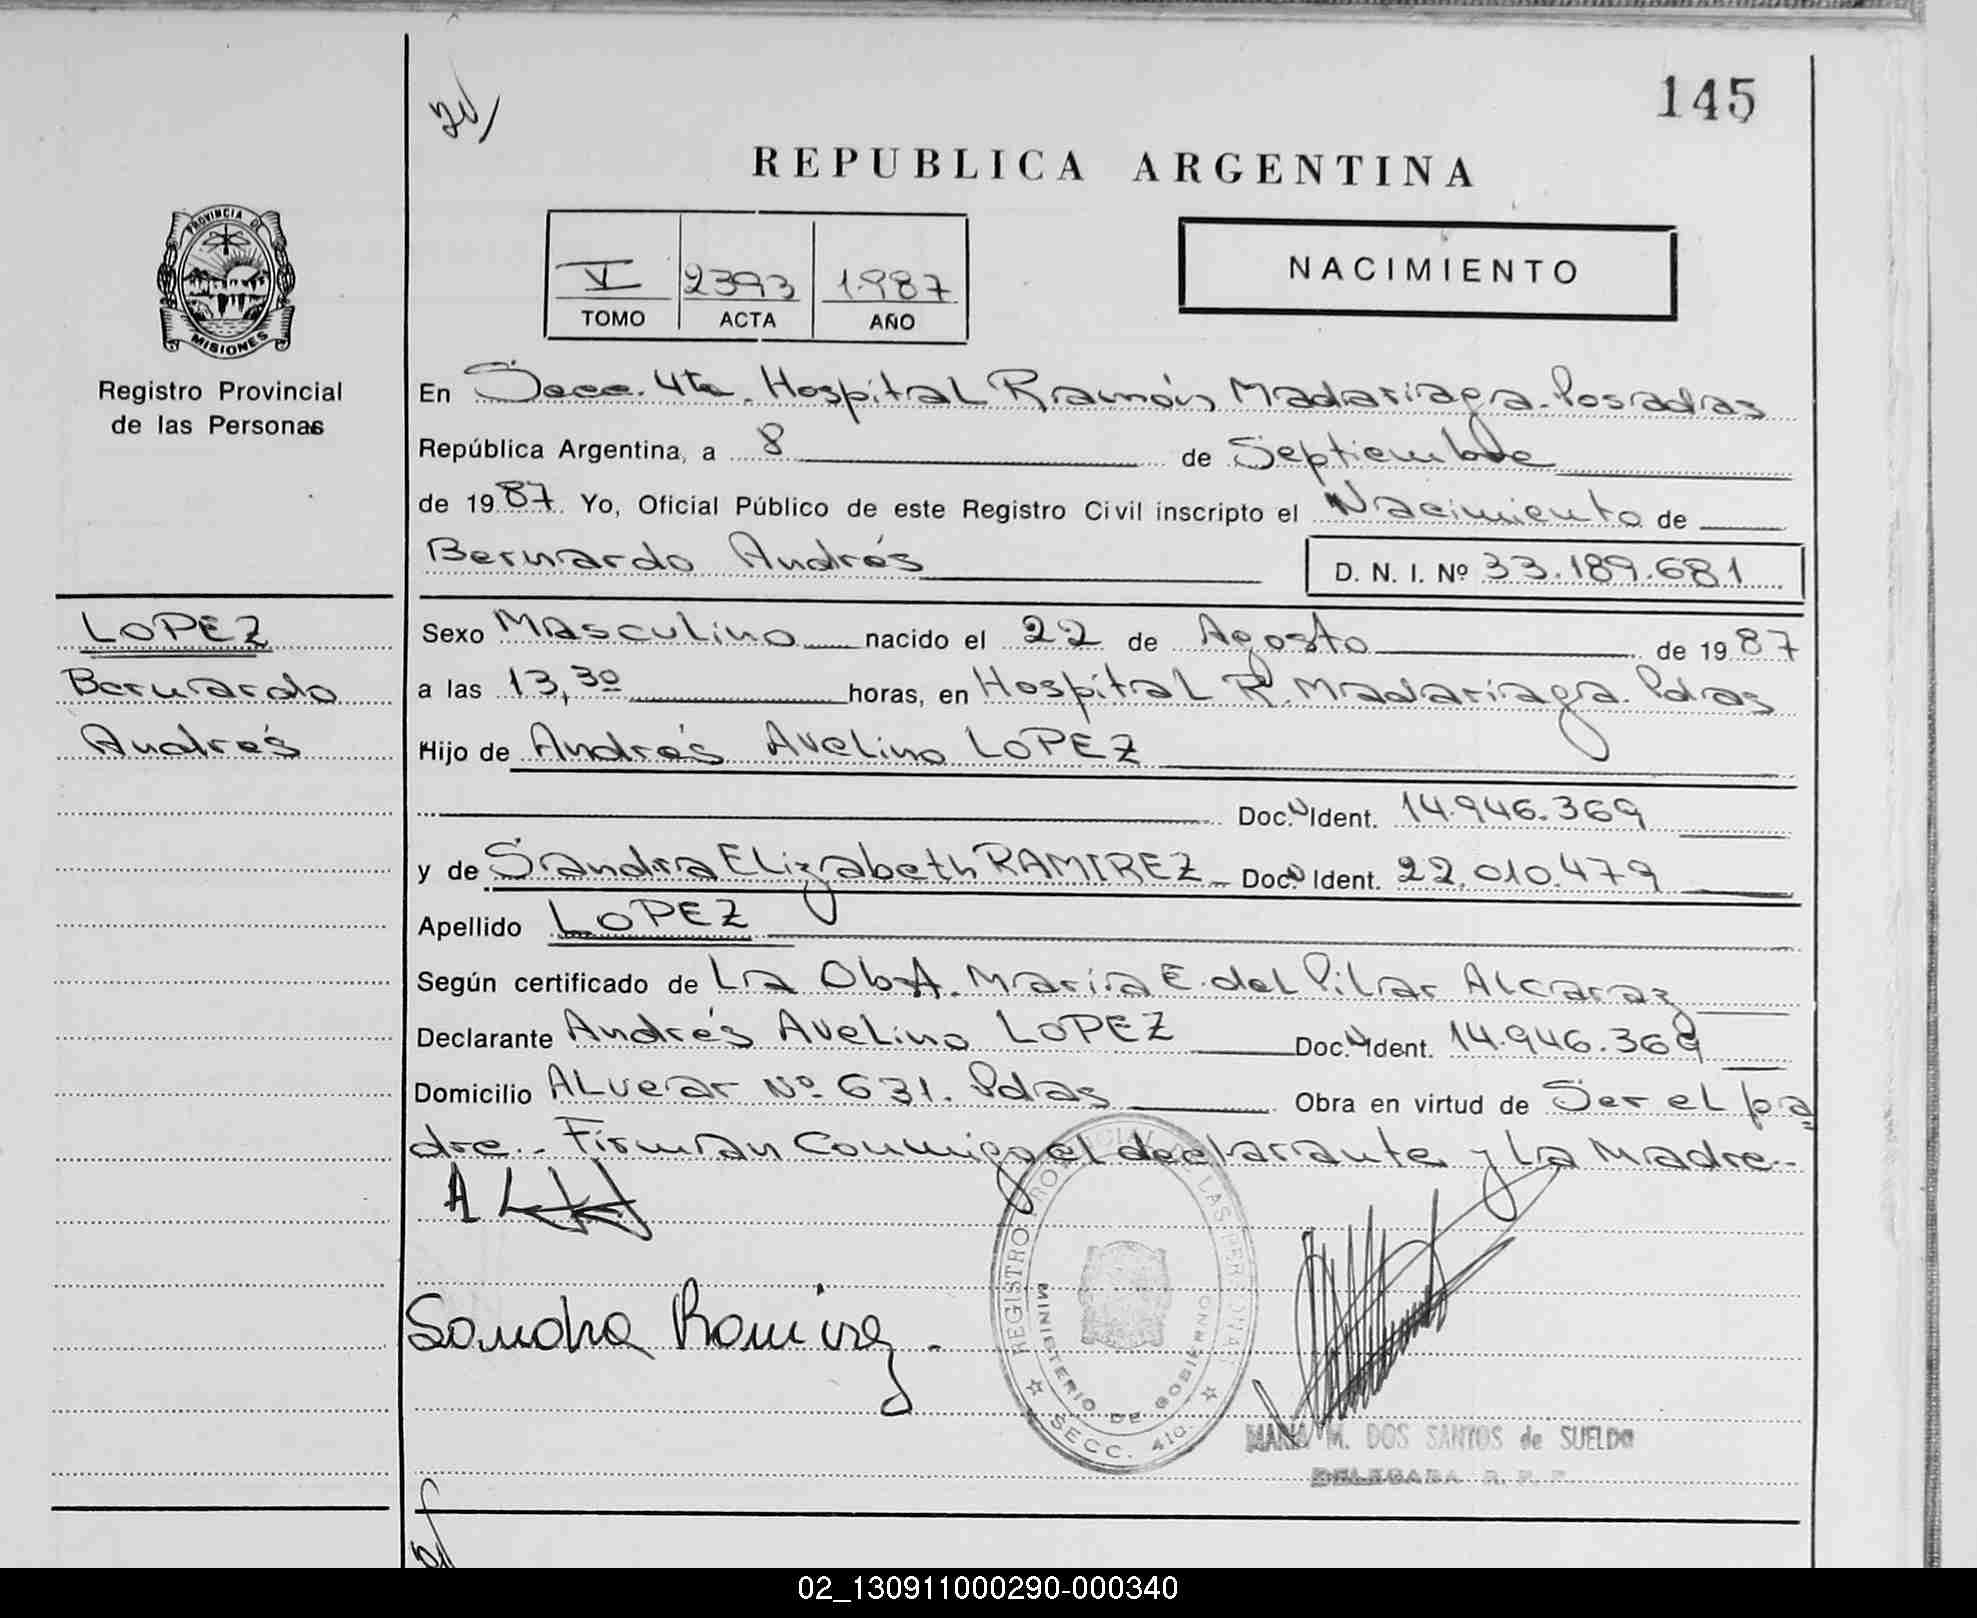 145
REPUBLICA ARGENTINA
PROVINCIA DE
MISIONES
Registro Provincial
de las Personas
V 2393 1.987
TOMO ACTA AÑO
NACIMIENTO
En Secc. 4ta. Hospital Ramón Madariaga. Posadas
República Argentina, a 8 de Septiembre
de 1987. Yo, Oficial Público de este Registro Civil inscripto el Nacimiento de
Bernardo Andrés D. N. I. Nº 33.189.681
LOPEZ
Bernardo
Andrés
Sexo Masculino nacido el 22 de Agosto de 1987
a las 13,30 horas, en Hospital R. Madariaga. Pdas
Hijo de Andrés Avelino LOPEZ
Doc. Ident. 14.946.369
y de Sandra Elizabeth RAMIREZ Doc. Ident. 22.010.479
Apellido LOPEZ
Según certificado de La Obst. María E. del Pilar Alcaraz
Declarante Andrés Avelino LOPEZ Doc. Ident. 14.946.369
Domicilio ALvear Nº 631. Pdas Obra en virtud de Ser el pa
dre.- Firman Conmigo el declarante y La Madre.-
A L
Sandra Ramirez.
REGISTRO PROVINCIAL DE LAS PERSONAS
MINISTERIO DE GOBIERNO
SECC. 4ta.
MARIA M. DOS SANTOS de SUELDO
DELEGADA R. P. P.
02_130911000290-000340